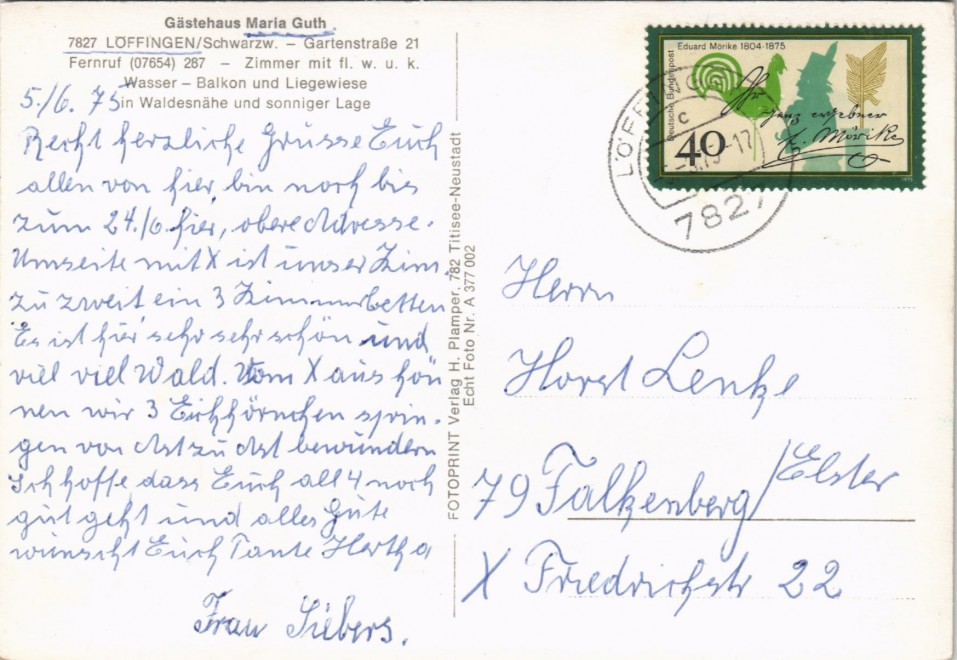 Gästehaus Maria Guth
7827 LÖFFINGEN/Schwarzw. – Gartenstraße 21
Fernruf (07654) 287 – Zimmer mit fl. w. u. k.
Wasser – Balkon und Liegewiese
in Waldesnähe und sonniger Lage
5./6. 75
Recht herzliche Grüsse Euch
allen von hier, bin noch bis
zum 24./6 hier, obere Adresse.
Umseite mit X ist unser Zim.
zu zweit ein 3 Zimmerbetten
Es ist hier sehr sehr schön und
viel viel Wald. Vom X aus kön
nen wir 3 Eichhörnchen sprin-
gen von Ast zu Ast bewundern
Ich hoffe dass Euch all 4 noch
gut geht und alles Gute
wünscht Euch Tante Hertha
Frau Siebers.
FOTOPRINT Verlag H. Plamper, 782 Titisee-Neustadt
Echt Foto Nr. A 377 002
Deutsche Bundespost
Eduard Mörike 1804-1875
40
Ihr
ganz ergebner
E. Mörike
1975
LÖFFINGEN
c
-17
7827
Herrn
Horst Lenke
79 Falkenberg/Elster
X Friedrichstr 22